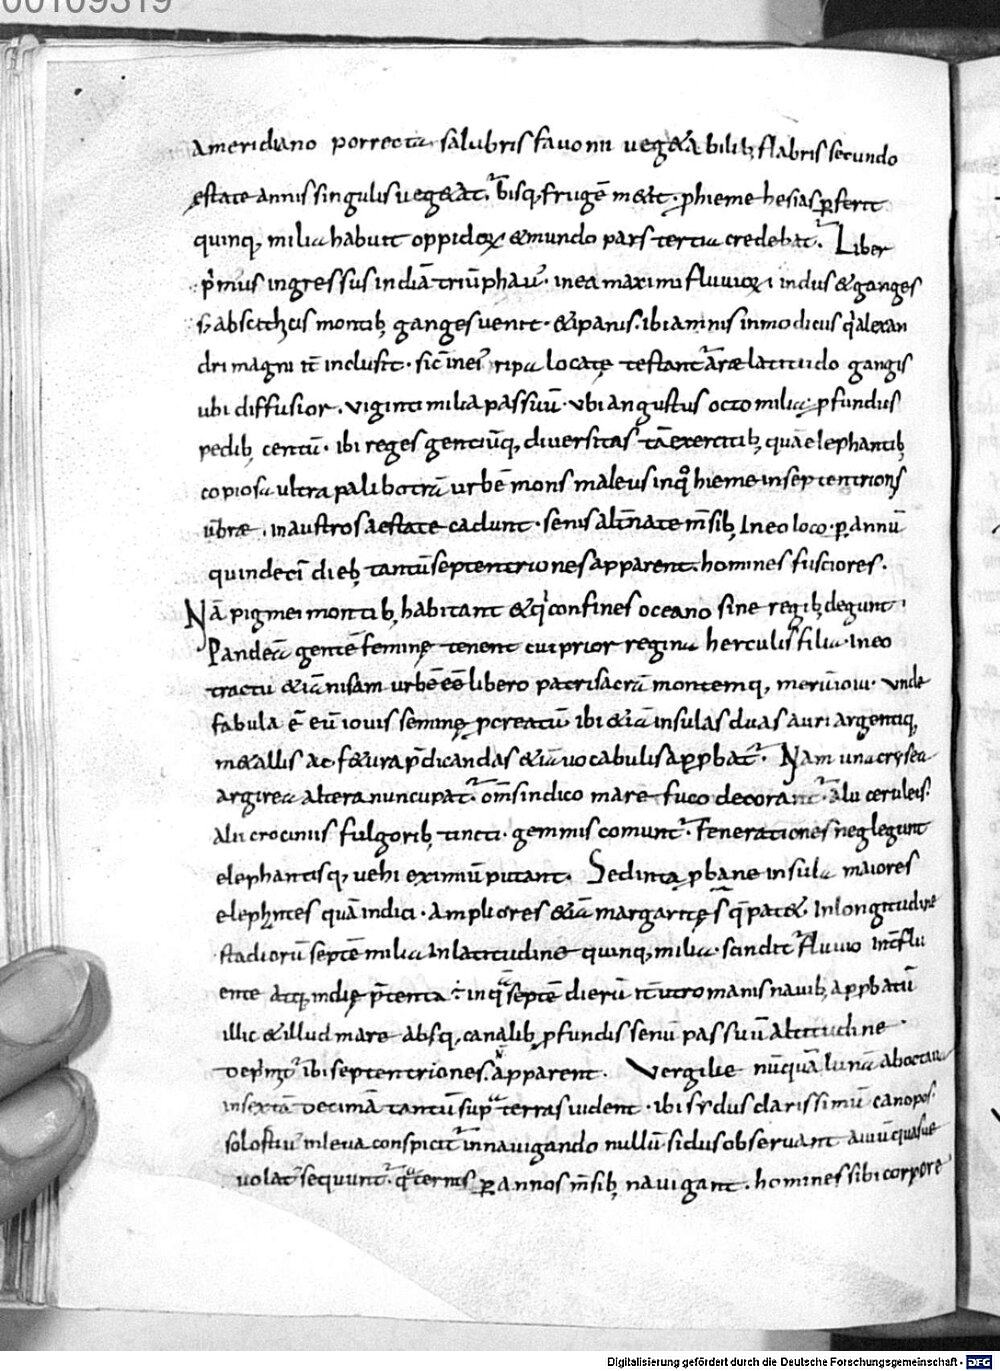 00109319
ameridiano porrecta salubris fauonii ueg&abilib; flabris secundo
ęstate annis singulis ueg&at᷑. bisq; frugē m&it. p hieme hesias ꝑfert
quinq; milia habuit oppidoꝝ &mundo pars tertia credebat᷑. Liber
pͥmus ingressus indiā triūphauͭ. inea maximi fluuioꝝ indus &ganges
s; absciticis montib; ganges uenit. &ipanis. ibi amnis inmodicus qͥ alexan
dri magni it̄ inclusit. sic̄ inei᷑ ripa locatę testant᷑ aræ latitudo gangis
ubi diffusior. uiginti milia passuū. ubi angustus octo milia; ꝓfundus
pedib; centū. ibi reges gentiūq; diuersitas tā exercitib; quā elephantib;
copiosa ultra palibotrā urbē mons maleus inqͦ hieme inseptentrions
ūbræ. inaustros aestate cadunt. senis alt̄nate m̄sib; Ineo loco. ꝑ annū
quindeci dieb; tantū septentriones apparent. homines fusciores.
Nā pigmei montib; habitant &qͥ confines oceano sine regib; degunt.
Pandeā gentē feminę tenent cui prior regina herculis filia. ineo
tractu &iā nisam urbē eē libero patri sacrā montemq; merū ioui. unde
fabula ē eū iouis femine ꝓcreatū. ibi &iā insulas duas auri argentiq;
m&allis ac f&ura p̄dicandas &iā uocabulis apꝓbat᷑. Nam una crysea
argirea altera nuncupat᷑. om̄s indico mare fuco decorant᷑. alii ceruleis.
alii crocinus fulgorib; tincti. gemmis comunt᷑. Fenerationes neglegunt
elephantisq; uehi eximiū putant. Sedinta ꝓbane insula maiores
elephntes quā indici. ampliores &iā margaritę sͭ q̄ pat&. Inlongitudine
stadiorū septē milia Inlatitudine quinq; milia. scindit᷑ fluuio int̄flu
ente atq; indię p̄tenta ÷ inqͣ septē dierū it̄ utro manis nauib; apꝓbatū
illic &illud mare absq; canalib; ꝓfundis senū passuū altitudine.
ibi septentriones. apparent. Vergilie nūquā lunā aboctaua
insextā decimā tantū supͣ terras uident. ibi sydus clarissimū canopos.
inleua conspicit᷑ innauigando nullū sidus obseruant auiū quasue
uolat᷑ sequunt᷑. qͣternis ꝑ annos m̄sib; nauigant. homines sibi corpore
Digitalisierung gefördert durch die Deutsche Forschungsgemeinschaft - DFG